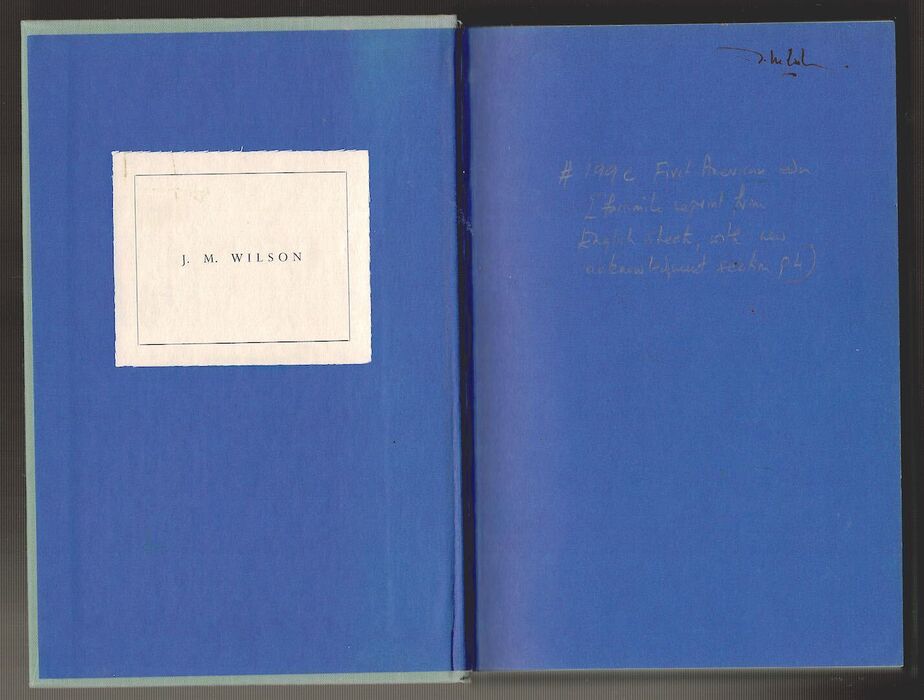 J. M. WILSON
# 199c First American edn
facsimile reprint from
English sheets, with new
acknowledgment section p4)